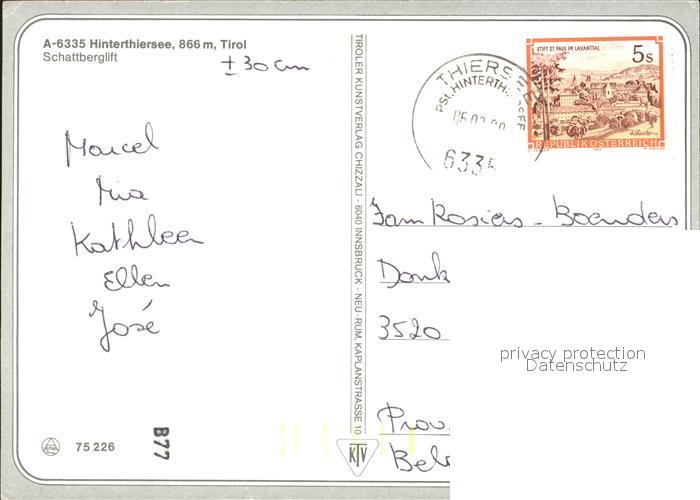 A-6335 Hinterthiersee, 866 m, Tirol
Schattberglift
± 30 cm
Marcel
Mia
Kathleen
Ellen
José
75 226
B77
TIROLER KUNSTVERLAG CHIZZALI - 6040 INNSBRUCK - NEU-RUM, KAPLANSTRASSE 10
KTV
THIERSEE
PSt. HINTERTHIERSEE
6335
STIFT ST. PAUL IM LAVANTTAL
5s
REPUBLIK ÖSTERREICH
Fam Rosiers - Boenders
Donk
3520
Prov.
Bel
privacy protection
Datenschutz